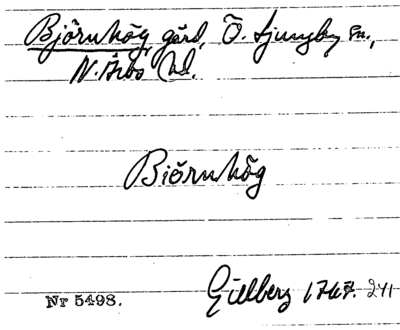 Björnhög, gård, Ö. Ljungby sn.,
N. Åsbo hd.
Biörnhög
Gillberg 1767. 241
Nr 5498.